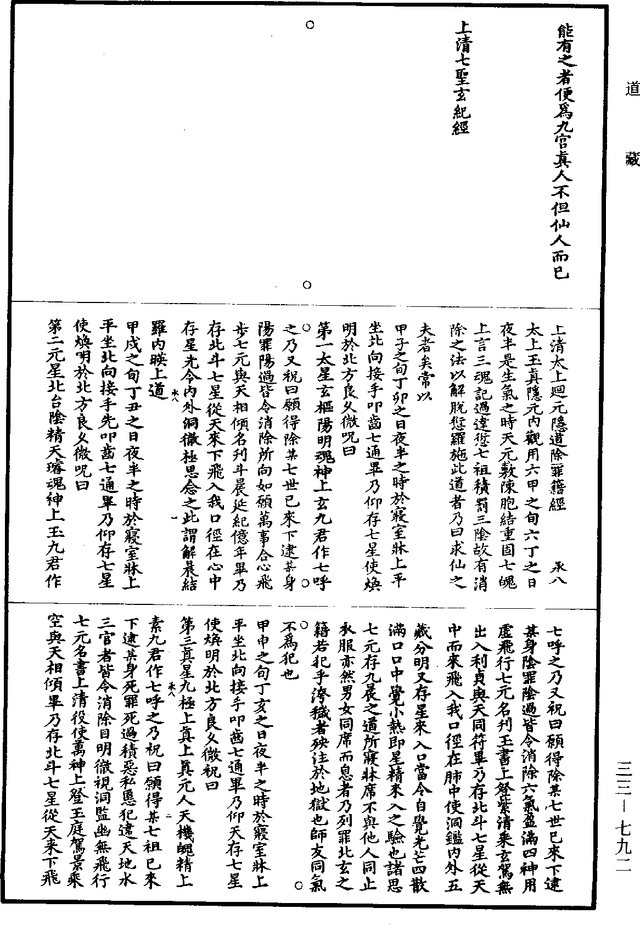 道藏
能有之者便爲九宫真人不但仙人而已
上清七聖玄紀經
上清太上迴元隱道除罪籍經 承八
太上玉真隱元內觀用六甲之旬六丁之日
夜半是生氣之時天元敷陳胞結重固七魄
上言三魂記過違愆七祖積罰三陰故有消
除之法以解脫愆羅施此道者乃曰求仙之
夫者矣常以
甲子之旬丁卯之日夜半之時於寢室牀上平
坐北向接手叩齒七通畢乃仰存七星使煥
明於北方良久微呪曰
第一太星玄樞陽明魂神上玄九君作七呼
之乃又祝曰願得除某七世已來下逮某身
陽罪陽過皆令消除所向如願萬事合心飛
步七元與天相傾名刋斗晨延紀億年畢乃
存北斗七星從天來下飛入我口徑在心中
存星光令內外洞徹極思念之此謂解晨結
羅內暎上道
甲戌之旬丁丑之日夜半之時於寢室牀上
平坐北向接手先叩齒七通畢乃仰存七星
使煥明於北方良久微呪曰
第二元星北台陰精天璿魂神上玉九君作
七呼之乃又祝曰願得除某七世已來下逮
某身陰罪陰過皆令消除六氣盈滿四神用
虛飛行七元名刋玉書上登紫清乘玄駕無
出入利貞與天同符畢乃存北斗七星從天
中而來飛入我口徑在肺中使洞鑑內外五
藏分明又存星來入口當令自覺光芒四散
滿口口中覺小熱即星精來入之驗也諸思
七元存九晨之道所寢牀席不與他人同止
衣服亦然男女同席而息者乃列罪北玄之
籍若犯手洿穢者殃注於地獄也師友同氣
不爲犯也
甲申之旬丁亥之日夜半之時於寢室牀上
平坐北向接手叩齒七通畢乃仰天存七星
使煥明於北方良久微祝曰
第三真星九極上真上真元人天機魄精上
素九君作七呼之乃祝曰願得某七祖已來
下逮某身死罪死過積惡私慝犯違天地水
三官者皆令消除目明徹視洞監幽無飛行
七元名書上清役使萬神上登玉庭駕景乘
空與天相傾畢乃存北斗七星從天來下飛
三三—七九二